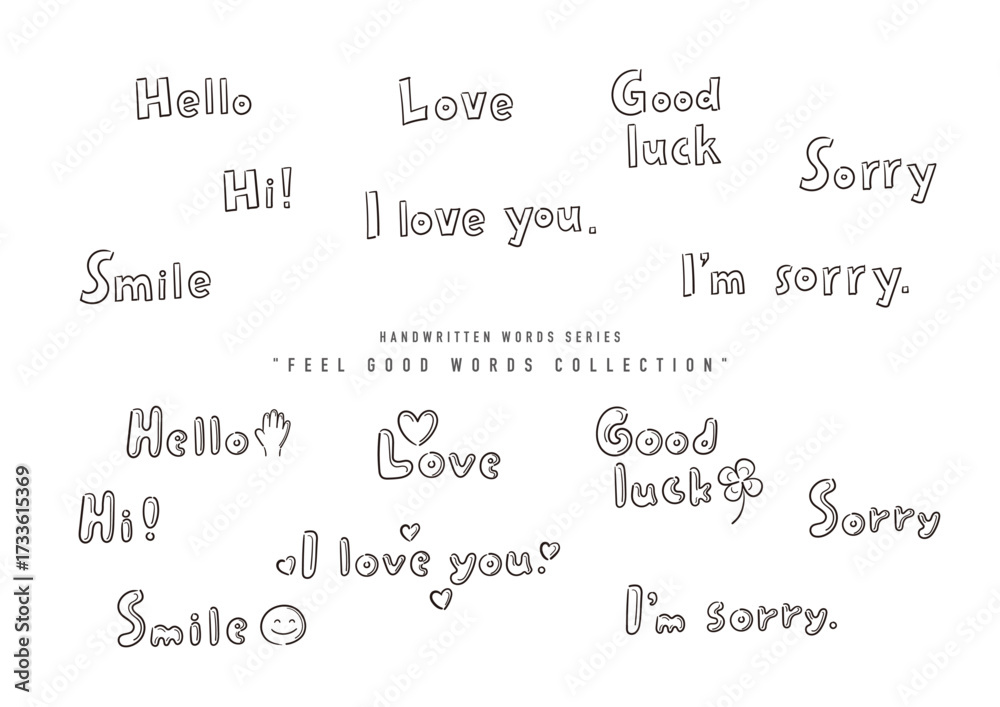 Hello
Love
Good
luck
Sorry
Hi!
I love you.
Smile
I'm sorry.
HANDWRITTEN WORDS SERIES
"FEEL GOOD WORDS COLLECTION"
Hello
Love
Good
luck
Hi!
Sorry
I love you.
Smile
I'm sorry.
Adobe Stock | #1733615369